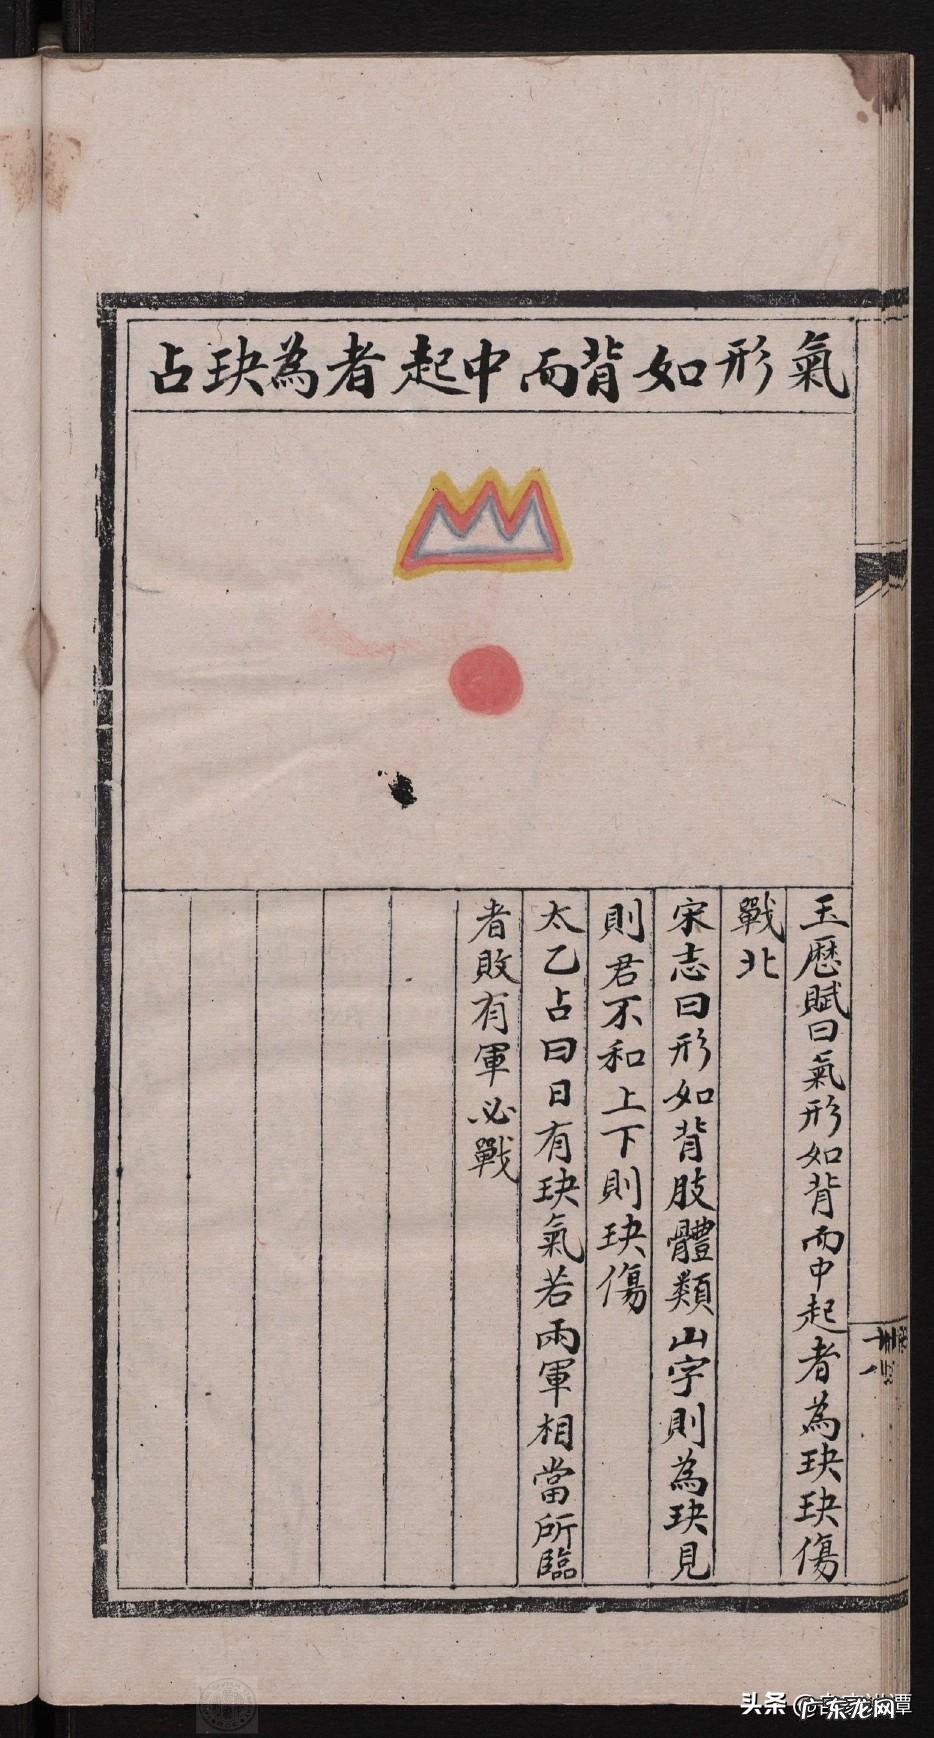 氣形如背而中起者為玦占
玉歷賦曰氣形如背而中起者為玦玦傷
戰北
宋志曰形如背肢體類山字則為玦見
則君不和上下則玦傷
太乙占曰日有玦氣若兩軍相當所臨
者敗有軍必戰
头条
广东龙网